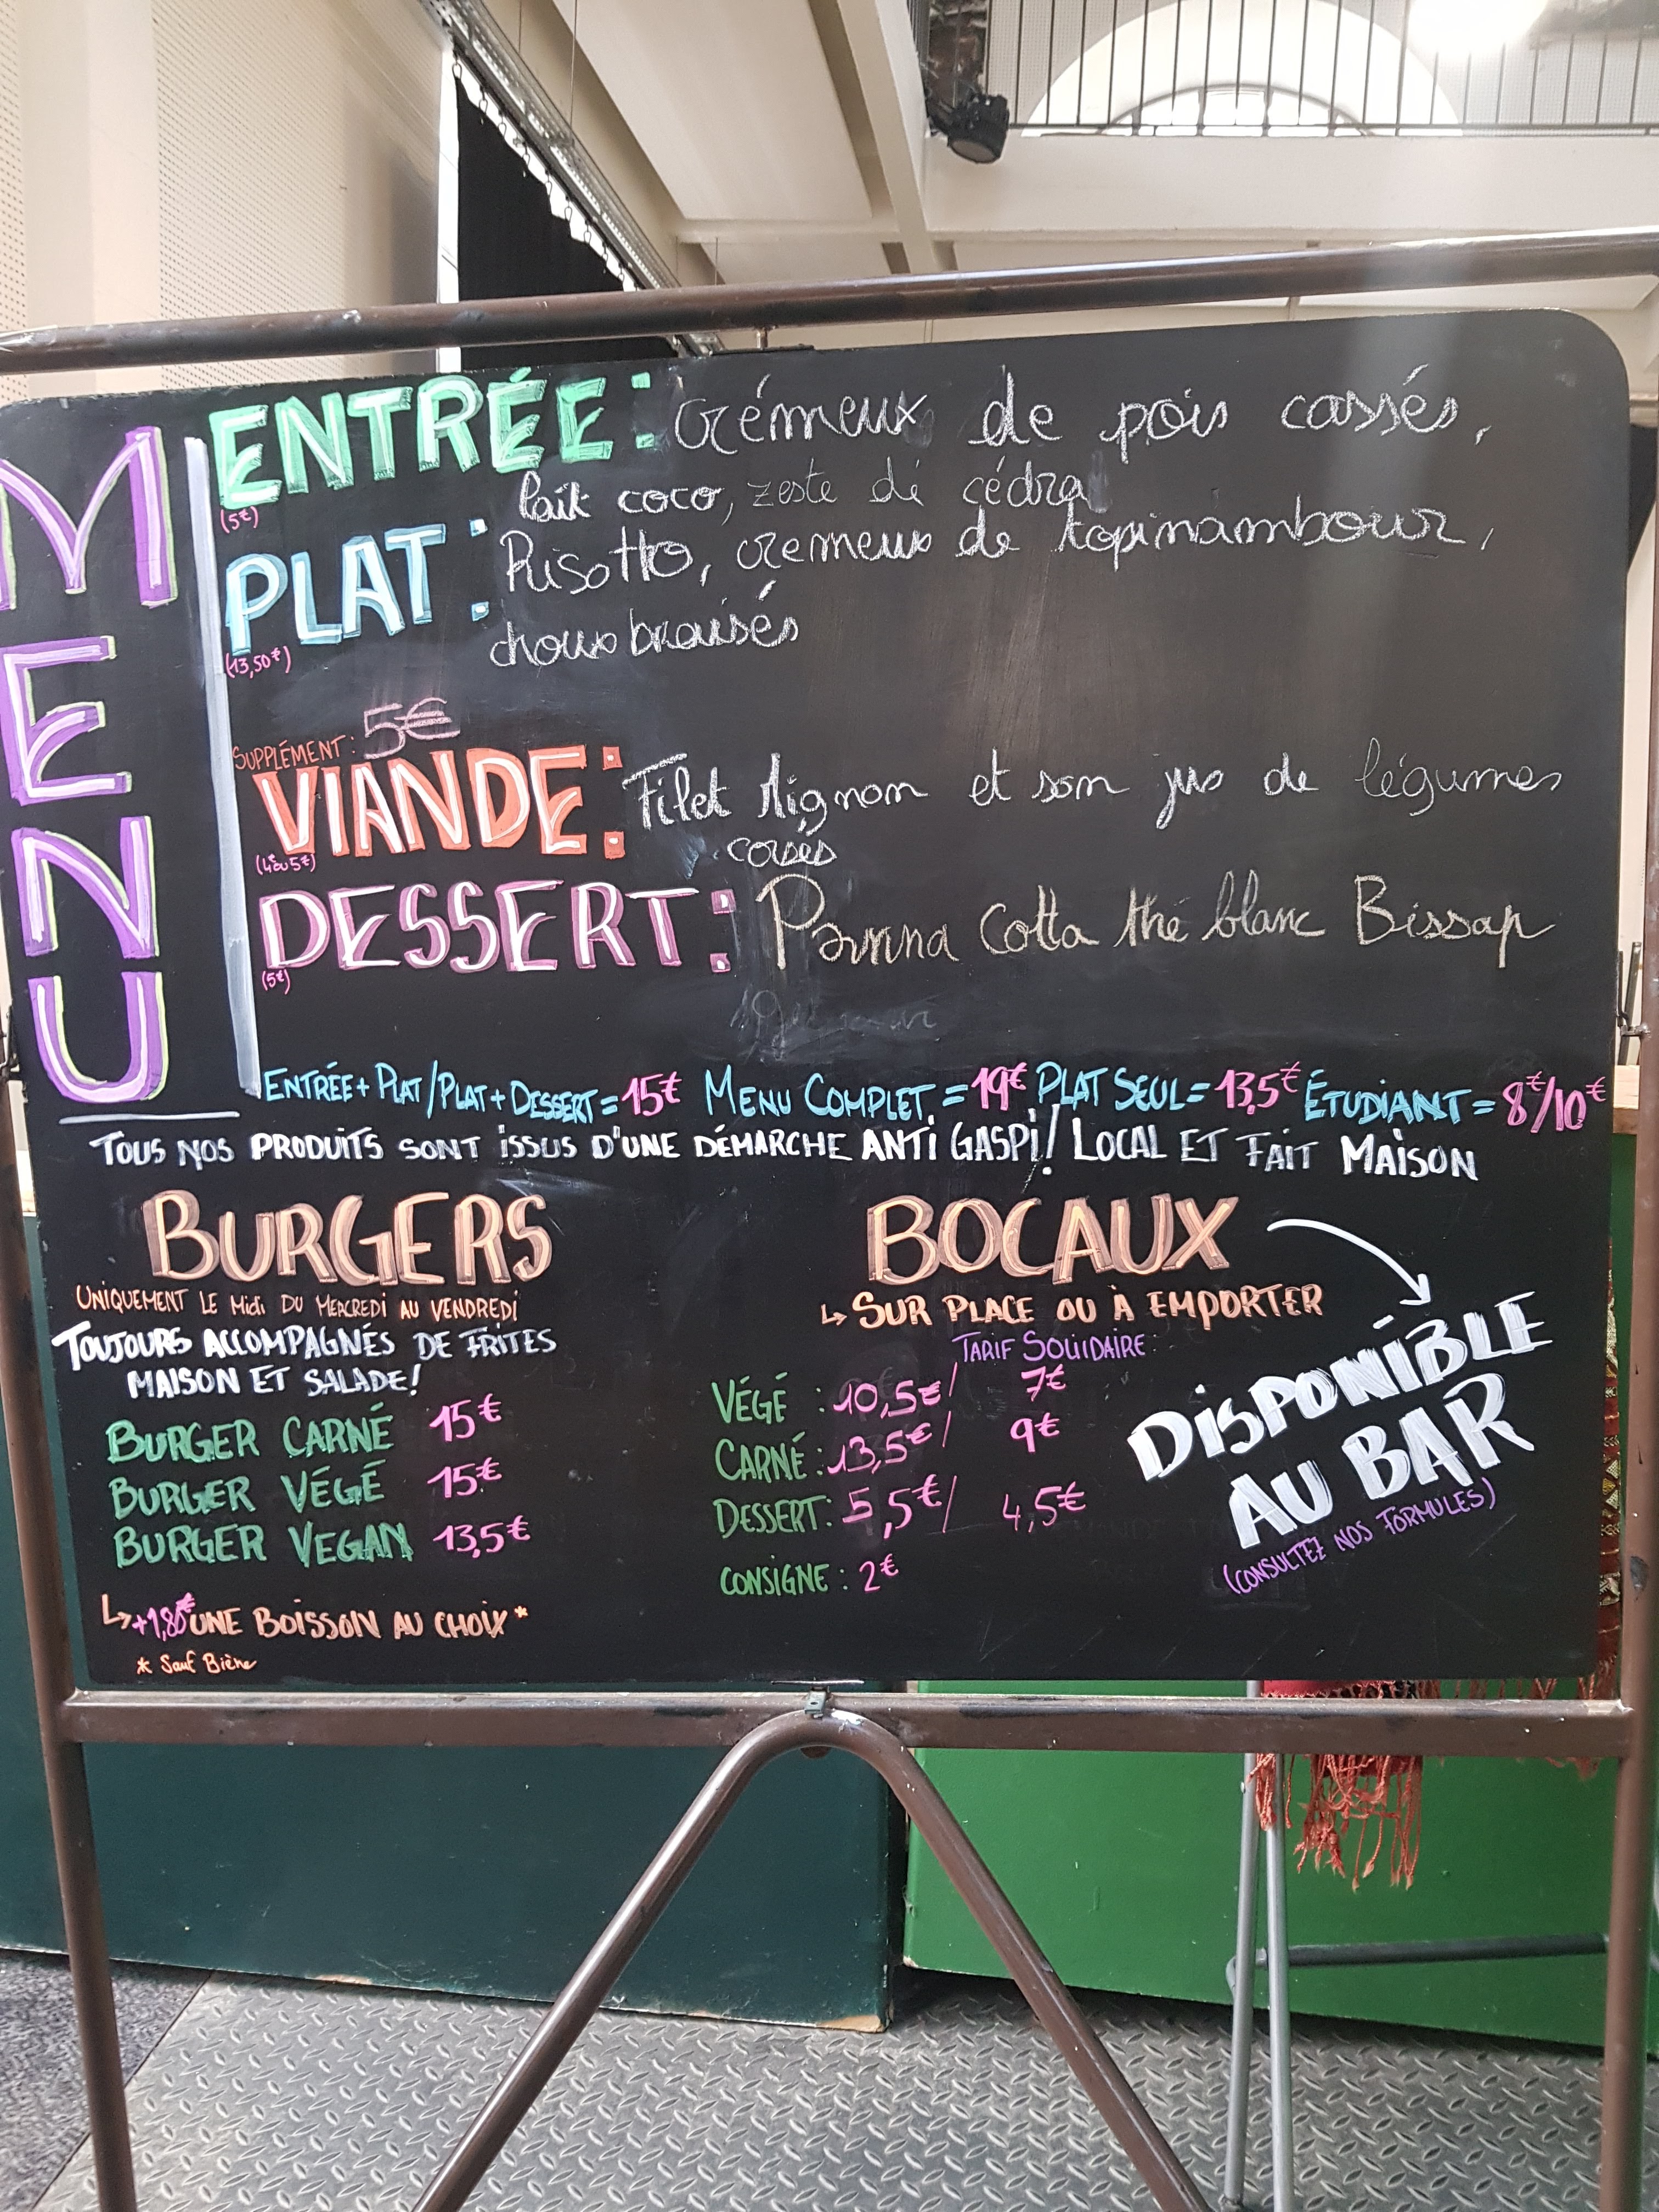 MENU
ENTRÉE: Crémeux de pois cassés,
(5€)
lait coco, zeste de cédra
PLAT: Risotto, cremeux de topinambour,
(13,50€)
choux braisés
SUPPLÉMENT: 5€
VIANDE: Filet Mignon et son jus de légumes
(4€ou5€)
corsés
DESSERT: Panna Cotta thé blanc Bissap
(5€)
ENTRÉE+PLAT/PLAT+DESSERT=15€ MENU COMPLET=19€ PLAT SEUL=13,5€ ÉTUDIANT=8€/10€
TOUS NOS PRODUITS SONT ISSUS D'UNE DÉMARCHE ANTI GASPI! LOCAL ET FAIT MAISON
BURGERS
UNIQUEMENT LE Midi DU MERCREDI AU VENDREDI
TOUJOURS ACCOMPAGNÉS DE FRITES
MAISON ET SALADE!
BURGER CARNÉ 15€
BURGER VÉGÉ 15€
BURGER VEGAN 13,5€
↳+1,80€ UNE BOISSON AU CHOIX*
* Sauf Bière
BOCAUX
↳ SUR PLACE OU À EMPORTER
TARIF SOLIDAIRE:
VÉGÉ : 10,5€/ 7€
CARNÉ: 13,5€/ 9€
DESSERT: 5,5€/ 4,5€
CONSIGNE : 2€
DISPONIBLE
AU BAR
(CONSULTEZ NOS FORMULES)